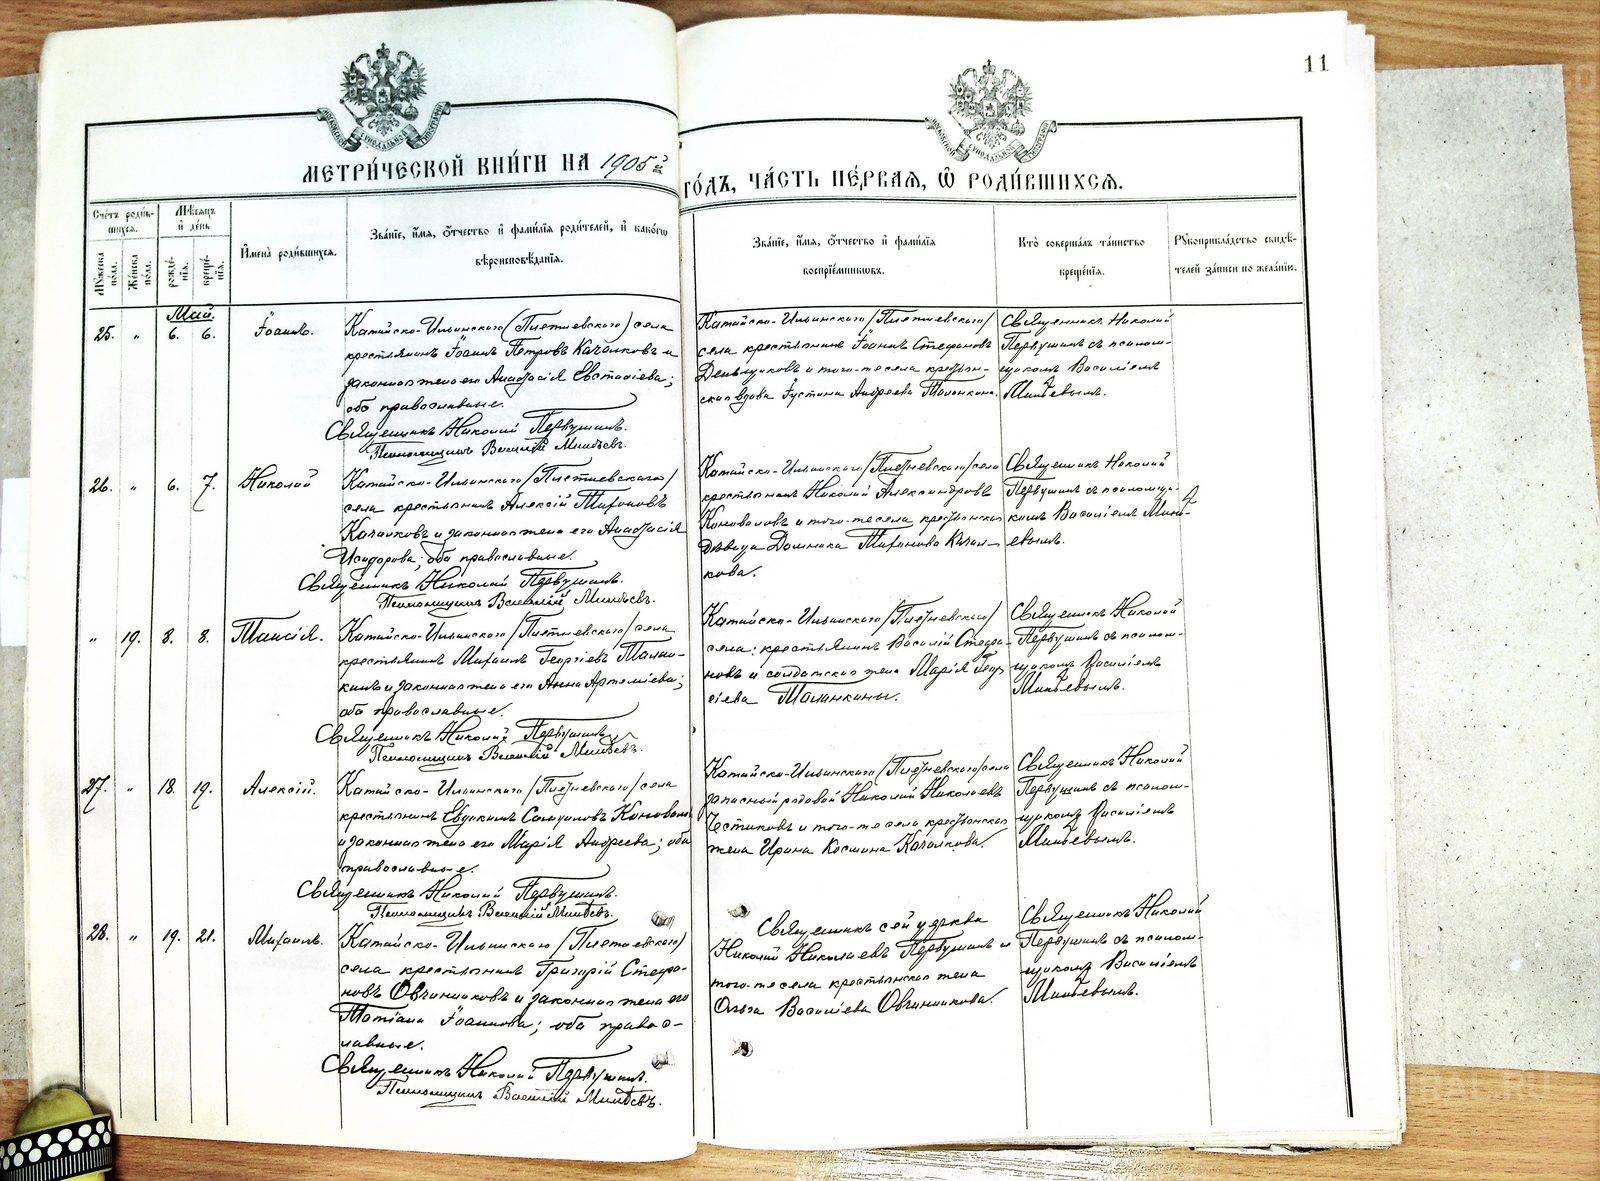 11
МЕТРИ́ЧЕСКОЙ КНИ́ГИ НА 1905й
ГО́ДЪ, ЧА́СТЬ ПЕ́РВАЯ, Ѡ РОДИ́ВШИХСЯ.
Сче́тъ роди́в-
шихся.
Мѣсяцъ
и де́нь
Му́жеска по́ла.
Же́нска по́ла.
рожде́-
нія.
креще́-
нія.
Имена̀ роди́вшихся.
Зва́ніе, и́мя, о́тчество и фами́лія роди́телей, и како́гѡ
вѣроисповѣ́данія.
Зва́ніе, и́мя, о́тчество и фами́лія
воспріе́мниковъ.
Кто̀ соверша́лъ та́инство
креще́нія.
Рꙋкоприкла́дство свидѣ́-
телей за́писи по жела́нію.
Май.
25. " 6. 6. Іоаннъ.
Катайско-Ильинскаго (Плетневскаго) села
крестьянинъ Іоаннъ Петровъ Качалковъ и
законная жена его Анастасія Евстафіева;
оба православные.
Священникъ Николай Первушинъ.
Псаломщикъ Василій Минѣевъ.
Катайско-Ильинскаго /Плетневскаго/
села крестьянинъ Іоаннъ Стефановъ
Деньщиковъ и того-же села крестьян-
ская вдова Іустина Андреева Таланкина.
Священникъ Николай
Первушинъ съ псалом-
щикомъ Василіемъ
Минѣевымъ.
26. " 6. 7. Николай
Катайско-Ильинскаго /Плетневскаго/
села крестьянинъ Алексій Тихоновъ
Качалковъ и законная жена его Анастасія
Исидорова; оба православные.
Священникъ Николай Первушинъ.
Псаломщикъ Василій Минѣевъ.
Катайско-Ильинскаго /Плетневскаго/ села
крестьянинъ Николай Александровъ
Коноваловъ и того-же села крестьянская
дѣвица Домника Тихонова Качал-
кова.
Священникъ Николай
Первушинъ съ псаломщи-
комъ Василіемъ Минѣ-
евымъ.
" 19. 8. 8. Таисія.
Катайско-Ильинскаго /Плетневскаго/ села
крестьянинъ Михаилъ Георгіевъ Талан-
кинъ и законная жена его Анна Артеміева;
оба православные.
Священникъ Николай Первушинъ.
Псаломщикъ Василій Минѣевъ.
Катайско-Ильинскаго /Плетневскаго/
села: крестьянинъ Василій Стефа-
новъ и солдатская жена Марія Геор-
гіева Таланкины.
Священникъ Николай
Первушинъ съ псалом-
щикомъ Василіемъ
Минѣевымъ.
27. " 18. 19. Алексій.
Катайско-Ильинскаго /Плетневскаго/ села
крестьянинъ Евдокимъ Коновалов
и законная жена его Марія Андреева; оба
православные.
Священникъ Николай Первушинъ.
Псаломщикъ Василій Минѣевъ.
Катайско-Ильинскаго /Плетневскаго/ села
запасный рядовой Николай Николаевъ
и того-же села крестьянская
жена Ирина Космина Качалкова.
Священникъ Николай
Первушинъ съ псалом-
щикомъ Василіемъ
Минѣевымъ.
28. " 19. 21. Михаилъ.
Катайско-Ильинскаго /Плетневскаго/
села крестьянинъ Григорій Стефа-
новъ Овчинниковъ и законная жена его
Татіана Іоаннова; оба право с-
лавные.
Священникъ Николай Первушинъ.
Псаломщикъ Василій Минѣевъ.
Священникъ сей церкви
Николай Николаевъ Первушинъ и
того-же села крестьянская жена
Ольга Василіева Овчинникова.
Священникъ Николай
Первушинъ съ псалом-
щикомъ Василіемъ
Минѣевымъ.